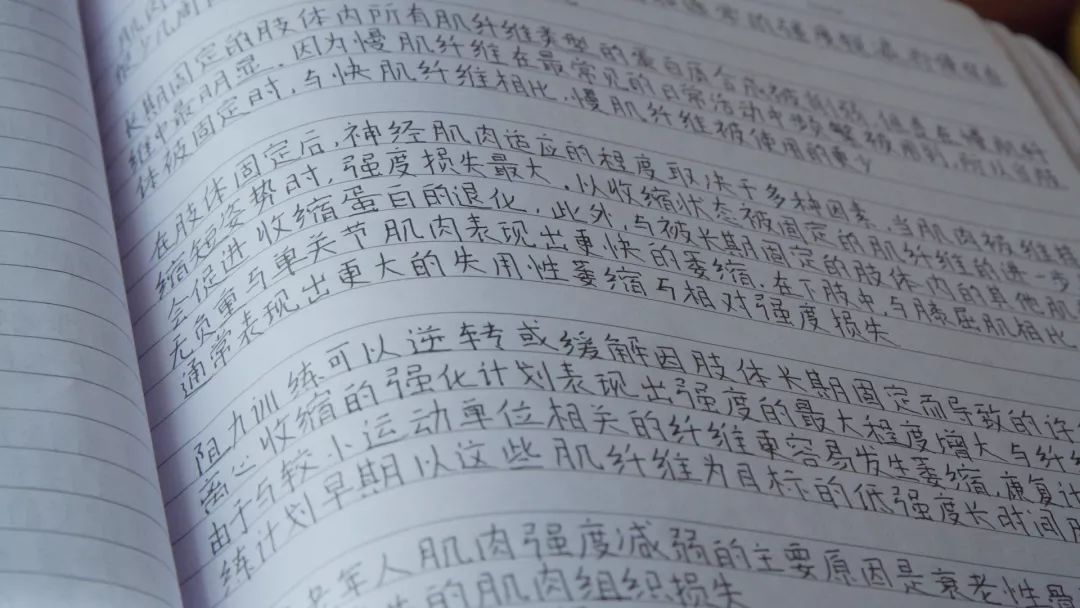 长期固定的肢体内所有肌纤维类型的蛋白质合成被削弱,但是在慢肌纤
维中最明显,因为慢肌纤维在最常见的日常活动中频繁被用到,所以当肢
体被固定时,与快肌纤维相比,慢肌纤维被使用的更少
在肢体固定后,神经肌肉适应的程度取决于多种因素,当肌肉被维持
缩短姿势时,强度损失最大,以收缩状态被固定的肌纤维的进一步
会促进收缩蛋白的退化,此外,与被长期固定的肢体内的其他肌
无负重与单关节肌肉表现出更快的萎缩,在下肢中,与膝屈肌相比
通常表现出更大的失用性萎缩与相对强度损失
阻力训练可以逆转或缓解因肢体长期固定而导致的许
离心收缩的强化计划表现出强度的最大程度增大与纤
由于与较小运动单位相关的纤维更容易发生萎缩,康复计
练计划早期以这些肌纤维为目标的低强度长时间
老年人肌肉强度减弱的主要原因是衰老性骨
的肌肉组织损失